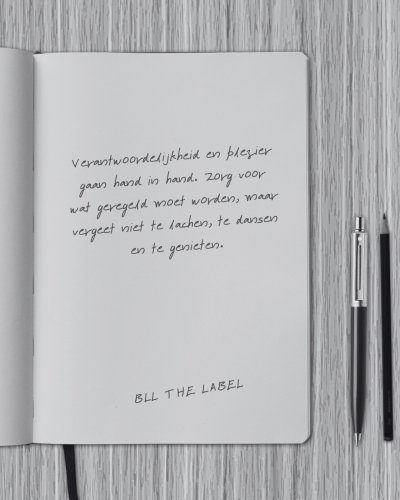 Verantwoordelijkheid en plezier
gaan hand in hand. Zorg voor
wat geregeld moet worden, maar
vergeet niet te lachen, te dansen
en te genieten.
BLL THE LABEL